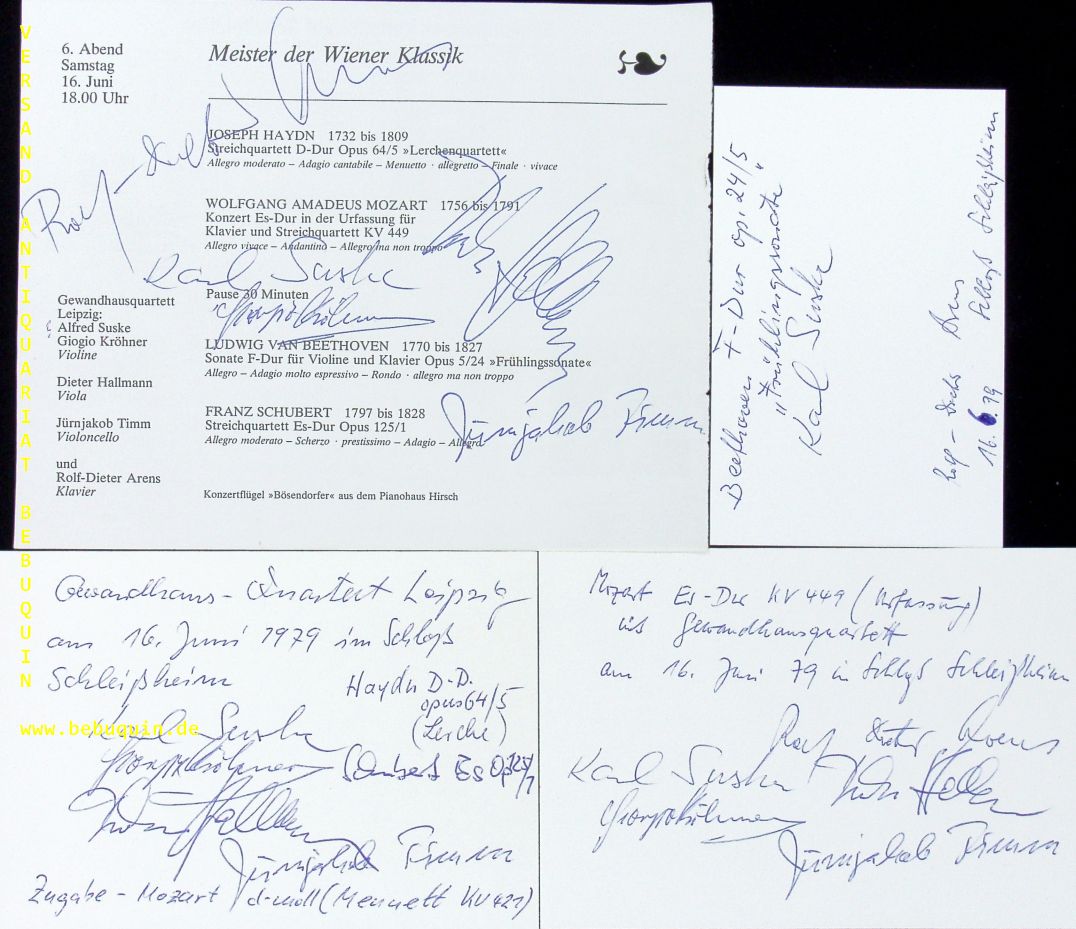 VERSANDANTIQUARIAT BEBUQUIN
www.bebuquin.de
6. Abend
Samstag
16. Juni
18.00 Uhr
Meister der Wiener Klassik
JOSEPH HAYDN 1732 bis 1809
Streichquartett D-Dur Opus 64/5 »Lerchenquartett«
Allegro moderato – Adagio cantabile – Menuetto · allegretto – Finale · vivace
WOLFGANG AMADEUS MOZART 1756 bis 1791
Konzert Es-Dur in der Urfassung für
Klavier und Streichquartett KV 449
Allegro vivace – Andantino – Allegro ma non troppo
Karl Suske
Pause 30 Minuten
LUDWIG VAN BEETHOVEN 1770 bis 1827
Sonate F-Dur für Violine und Klavier Opus 5/24 »Frühlingssonate«
Allegro – Adagio molto espressivo – Rondo · allegro ma non troppo
FRANZ SCHUBERT 1797 bis 1828
Streichquartett Es-Dur Opus 125/1
Allegro moderato – Scherzo · prestissimo – Adagio – Allegro
Jürnjakob Timm
Konzertflügel »Bösendorfer« aus dem Pianohaus Hirsch
Gewandhausquartett
Leipzig:
Alfred Suske
Giogio Kröhner
Violine
Dieter Hallmann
Viola
Jürnjakob Timm
Violoncello
und
Rolf-Dieter Arens
Klavier
Beethoven F-Dur op. 24/5
"Frühlingssonate"
Karl Suske
Rolf-Dieter Arens Schloß Schleißheim
16.6.79
Gewandhaus-Quartett Leipzig
am 16. Juni 1979 im Schloß
Schleißheim
Haydn D-D.
opus 64/5
(Lerche)
Karl Suske
Schubert Es Op 125/1
Jürnjakob Timm
Zugabe - Mozart d-moll (Menuett KV 421)
Mozart Es-Dur KV 449 (Urfassung)
mit Gewandhausquartett
am 16. Juni 79 in Schloß Schleißheim
Rolf-Dieter Arens
Karl Suske
Jürnjakob Timm